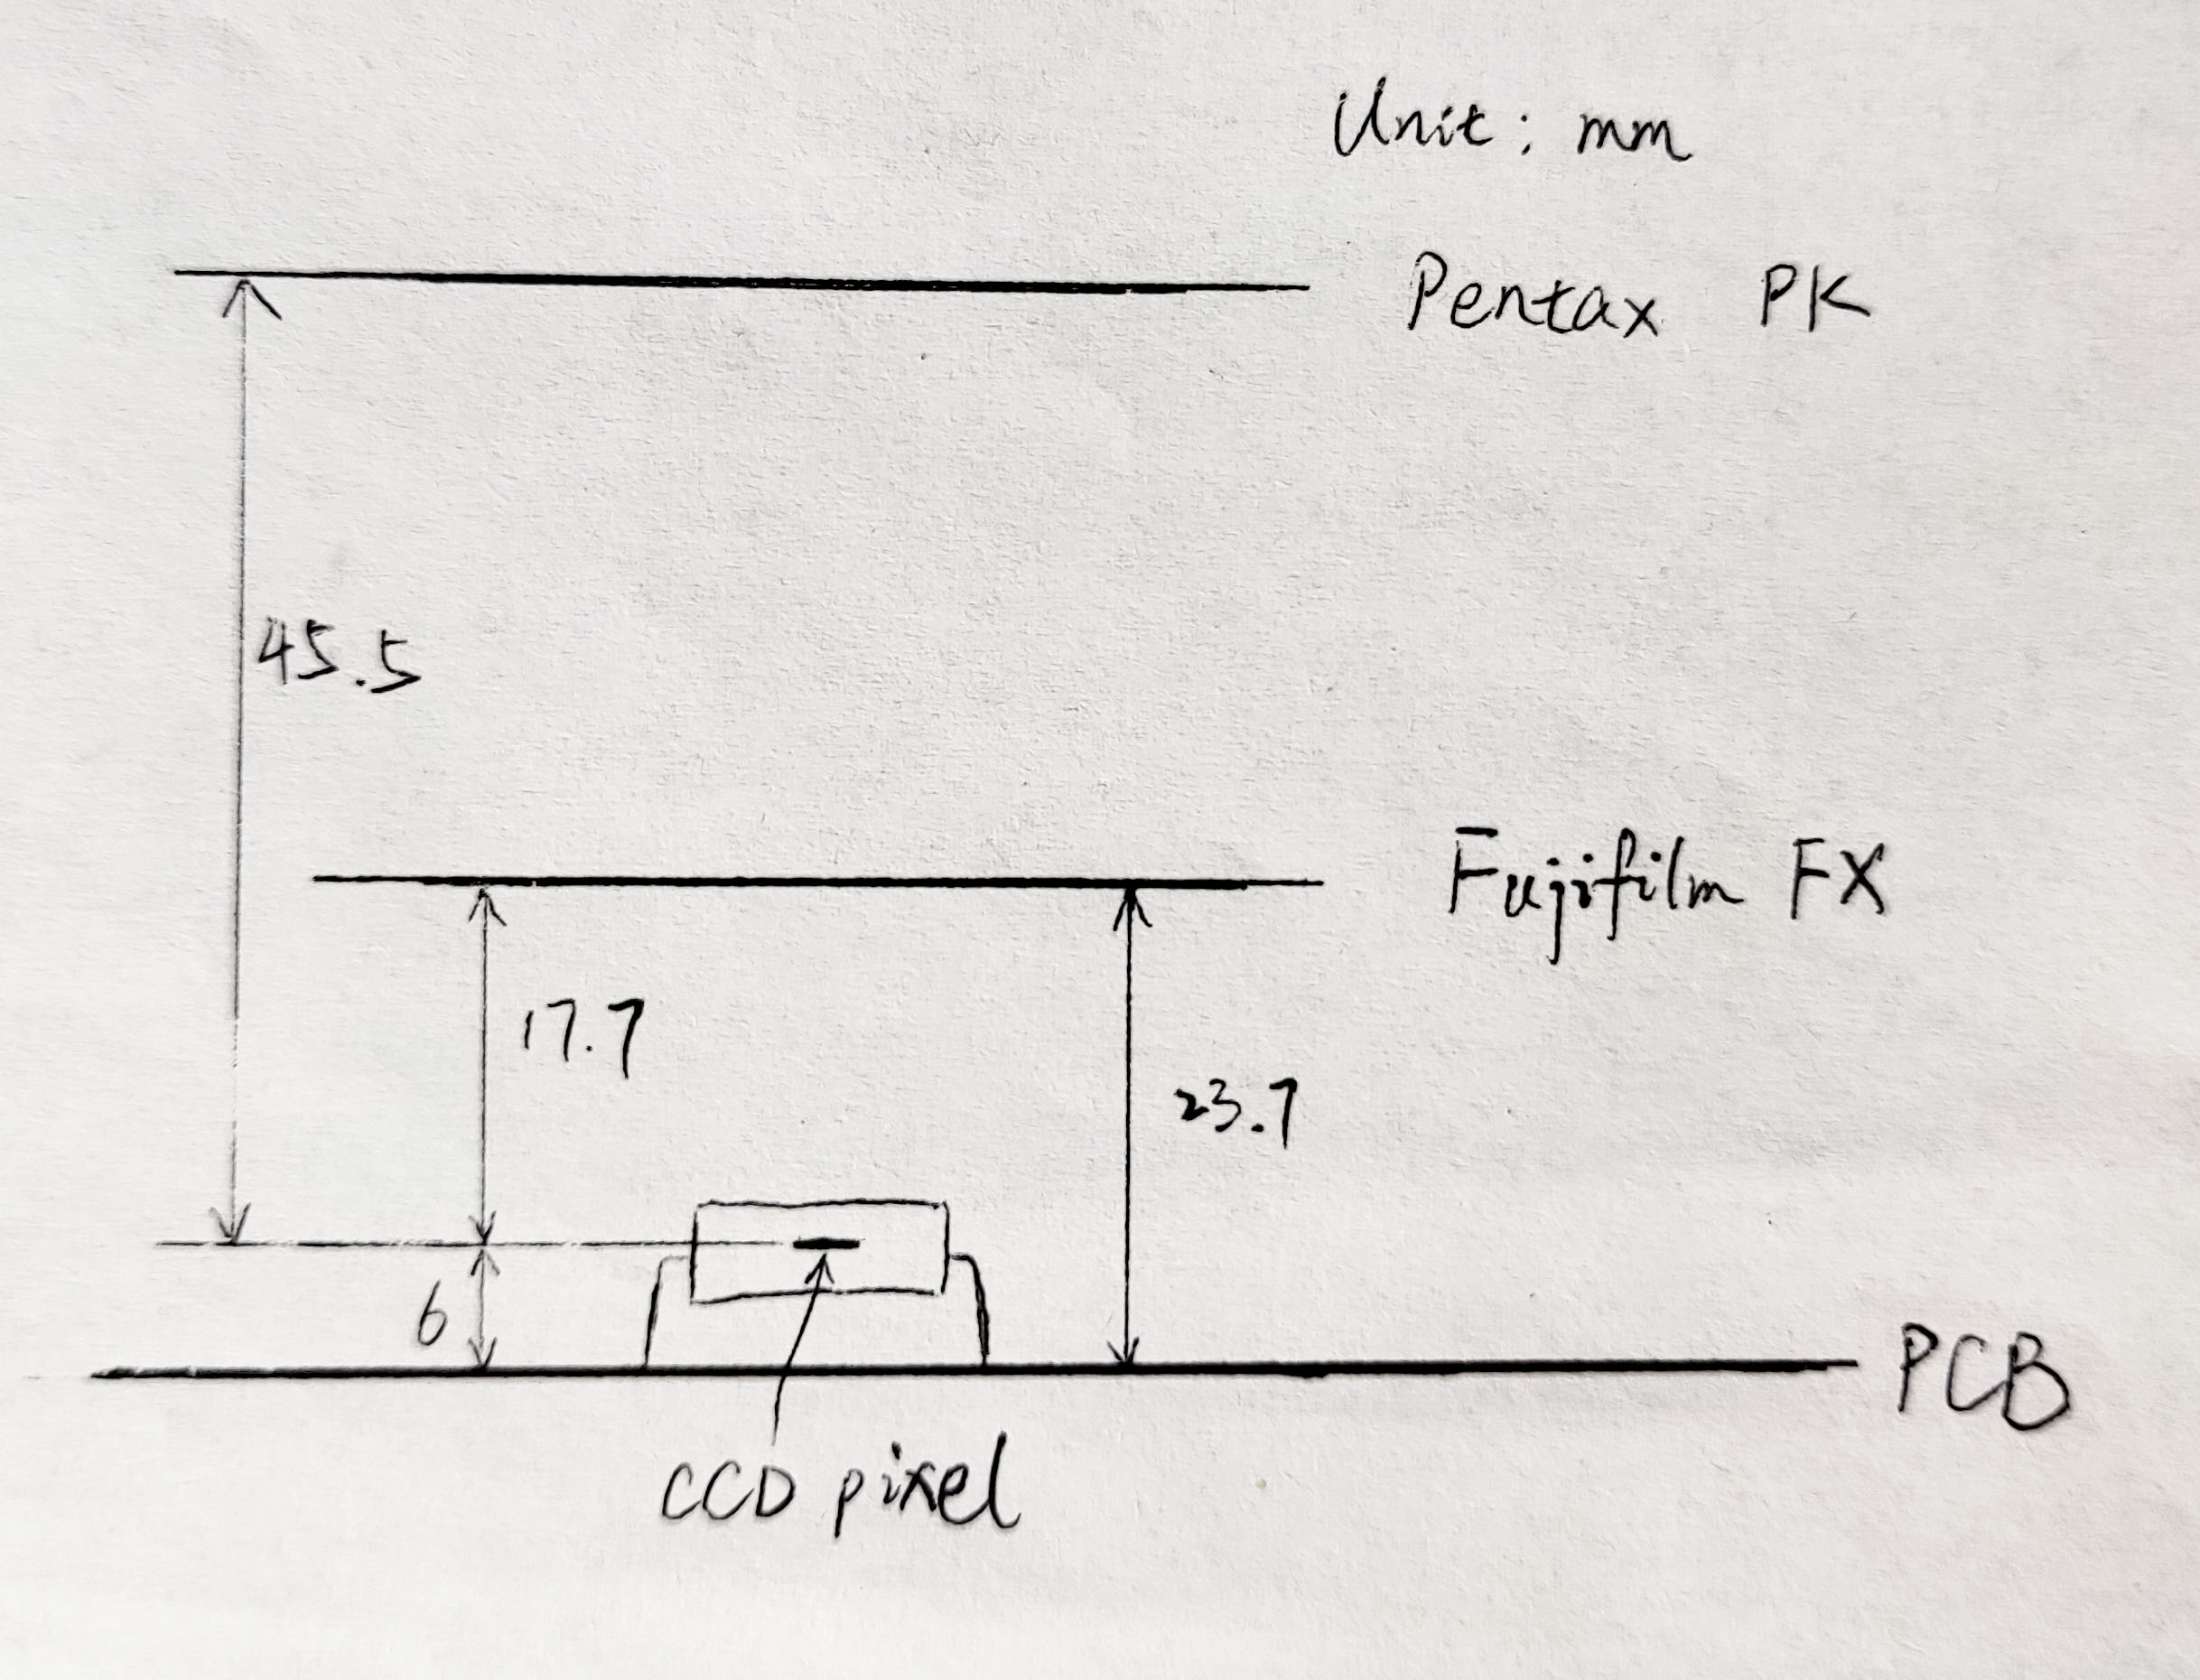 Unit: mm
Pentax PK
45.5
Fujifilm FX
17.7
23.7
6
PCB
CCD pixel